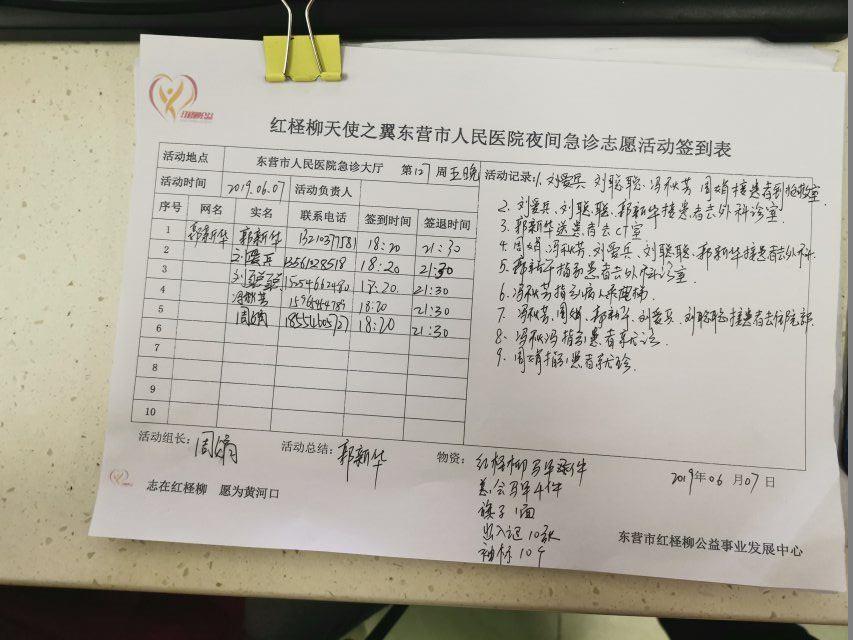 红柽柳天使之翼东营市人民医院夜间急诊志愿活动签到表
活动地点 东营市人民医院急诊大厅 第127周五晚
活动时间 2019.06.07 活动负责人
序号 网名 实名 联系电话 签到时间 签退时间
1 郭新华 郭新华 18:20 21:30
2 刘爱兵 18:20 21:30
3 刘聪聪 21:30
4 冯秋芳 18:20 21:30
5 周娟 18:20 21:30
6
7
8
9
10
活动记录:1、刘爱兵 刘聪聪、冯秋芳 周娟接患者到抢救室
2、刘爱兵、刘聪聪、郭新华接患者去外科诊室
3、郭新华送患者去CT室
4、周娟、冯秋芳、刘爱兵、刘聪聪、郭新华接患者去外科
5、指引患者去外科诊室
6、冯秋芳指引病人乘电梯
7、冯秋芳、周娟、刘爱兵、刘聪聪接患者去住院部
8、指引患者就诊
9、周娟指引患者就诊
活动组长:周娟
活动总结:郭新华
物资:红柽柳马甲
总会马甲4件
旗子1面
出入证10张
袖标10个
2019年06月07日
志在红柽柳 愿为黄河口
东营市红柽柳公益事业发展中心